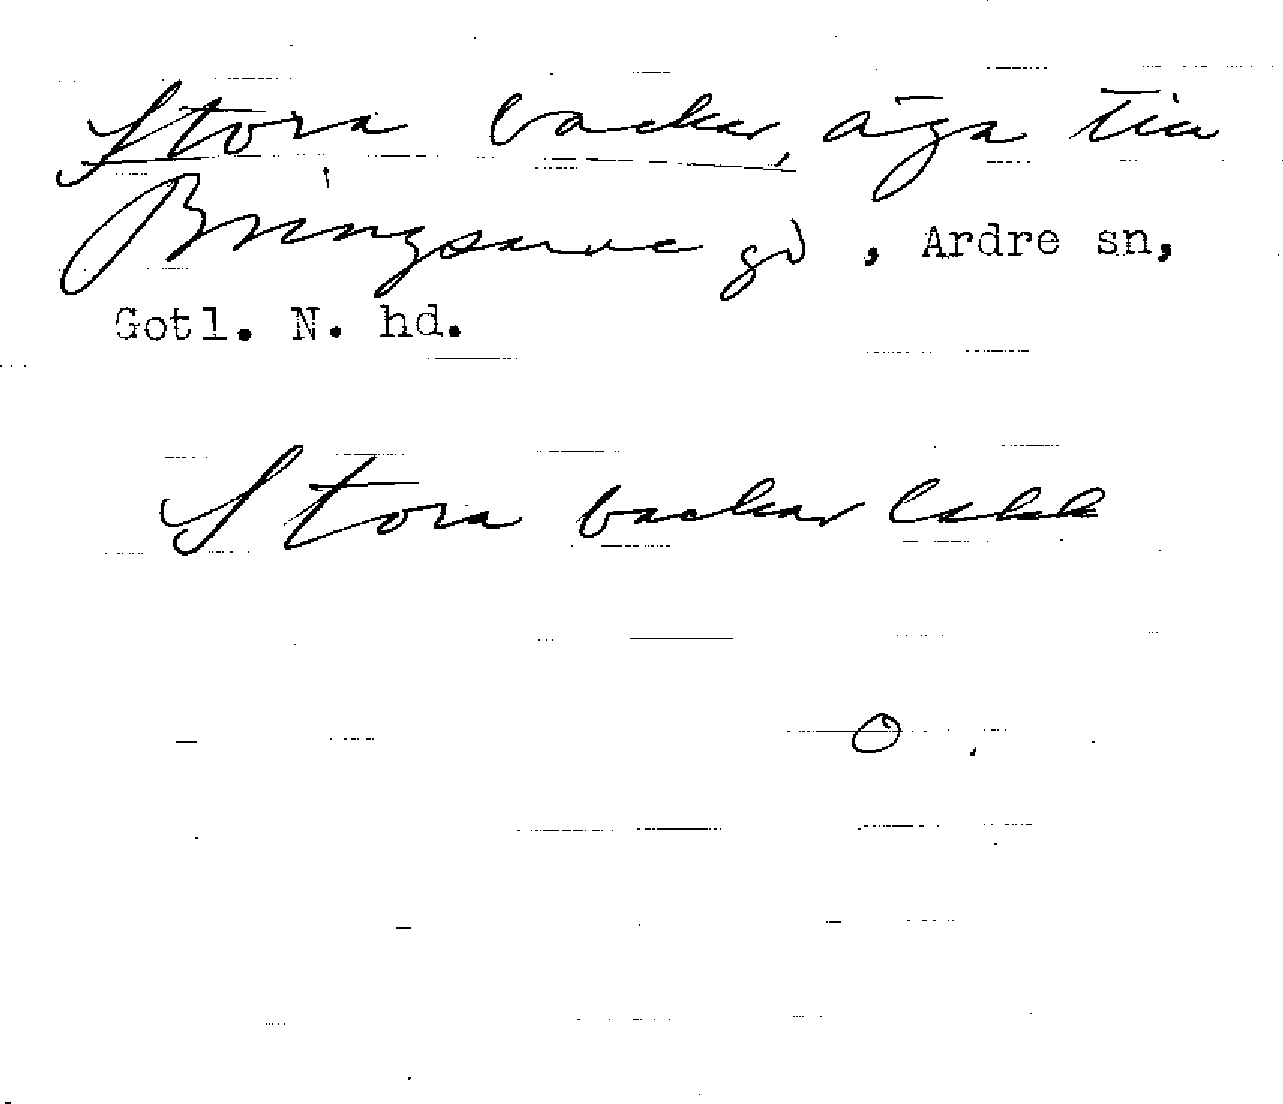 Stora backar, äga till
Bringsarve gd, Ardre sn,
Gotl. N. hd.
Stora backar
O.